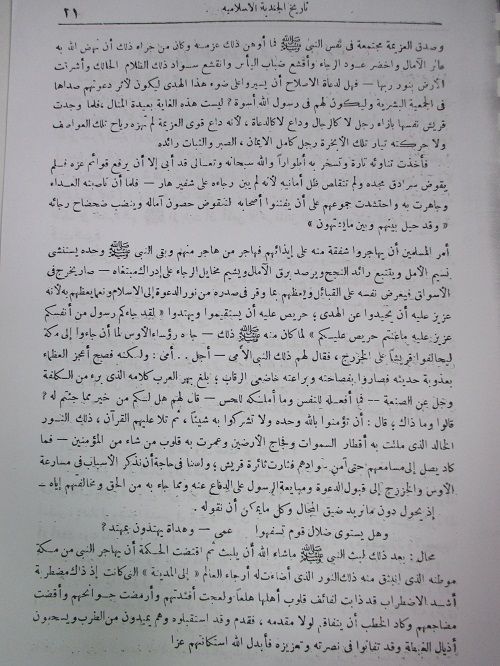 تاريخ الجندية الاسلاميه ... ٢١
وصدق العزيمة مجتمعة في نفس النبي ﷺ فما أوهن ذلك عزمه وكان من جراء ذلك أن نهض الله به
عاثر الآمال واخضر عود الرجاء وأقشع ضباب اليأس وانقشع سواد ذلك الظلام الحالك وأشرقت
الأرض بنور ربها – فهل لدعاة الاصلاح أن يسيروا على ضوء هذا الهدى ليكون لأثر دعوتهم صداها
في الجمعية البشرية وليكون لهم في رسول الله أسوة؟ ليست هذه الغاية بعيدة المنال، فلما وجدت
قريش نفسها بازاء رجل لا كالرجال وداع لا كالدعاة، لأنه داع قوى العزيمة لم تهزه رياح تلك العواصف
ولا حركته تيار تلك الأبخرة رجل كامل الايمان، الصبر والثبات رائده
فأخذت تناوئه تارة وتسخر به أطواراً والله سبحانه وتعالى قد أبى إلا أن يرفع قوائم عزه فلم
يقوض سرادق مجده ولم تتقلص ظل أمانيه لأنه لم يبن رجاءه على شفير هار – فلما أن ناصبته العداء
وجاهرت به واحتشدت جموعهم على أن يفتنوا أصحابه لتتقوض حصون آماله وينضب ضحضاح رجائه
« وقد حيل بينهم وبين ما يشتهون »
أمر المسلمين أن يهاجروا شفقة منه على إيذائهم فهاجر من هاجر منهم وبقى النبي ﷺ وحده يستنشى
نسيم الأمل ويقتبع رائد النجح ويرصد برق الآمال ويشيم مخايل الرجاء على إدراك مبتغاه – صار يخرج في
الأسواق فيعرض نفسه على القبائل ويعظهم بما وقر في صدره من نور الدعوة إلى الاسلام ونعما يعظهم به لأنه
عزيز عليه أن يحيدوا عن الهدى؛ حريص عليه أن يستقيموا ويهتدوا « لقد جاءكم رسول من أنفسكم
عزيز عليه ما عنتم حريص عليكم » لما كان منه ﷺ ذلك – جاءه رؤساء الأوس لما أن جاءوا إلى مكة
ليحالفوا قريشاً على الخزرج، فقال لهم ذلك النبي الأمي – أجل .. أمى: ولكنه فصيح أعجز العظماء
بعذوبة حديثه فصاروا بفصاحته وبراعته خاضعى الرقاب؛ بلغ بهر العرب كلامه الذى برىء من الكلفة
وجل عن الصنعة –– فما أفعله للنفس وما أملكه للحس – قال لهم هل لكم من خير مما جئتم له؟
قالوا وما ذاك؛ قال: أن تؤمنوا بالله وحده ولا تشركوا به شيئاً، ثم تلا عليهم القرآن، ذلك النور
الخالد الذى ملئت به أقطار السموات وفجاج الأرضين وعمرت به قلوب من شاء من المؤمنين – فما
كاد يصل إلى مسامعهم حتى آمن فثارت ثائرة قريش؛ ولسنا في حاجة أن نذكر الأسباب في مسارعة
الأوس والخزرج إلى قبول الدعوة ومبايعة الرسول على الدفاع عنه ومما جاء به من الحق ومخالفتهم إياه –
إذ يحول دون ما نريد ضيق المجال وكل ما يمكن أن نقوله.
وهل يستوى ضلال قوم تسفهوا عمى – وهداة يهتدون بمهتد؟
محال: بعد ذلك لبث النبي ﷺ ما شاء الله أن يلبث ثم اقتضت الحكمة أن يهاجر النبي من مكة
موطنه الذى انبثق منه ذلك النور الذى أضاءت له أرجاء العالم « إلى المدينة » التى كانت إذ ذاك مضطربة
أشد الاضطراب قد ذابت لفائف قلوب أهلها هلعاً ولعجت أفئدتهم وأرمضت جوانحهم وأقضت
مضاجعهم وكاد الخطب أن يتفاقم لولا مقدمه، فقدم وقد استقبلوه وهم يميدون من الطرب ويسحبون
أذيال الغبطة وقد تفانوا في نصرته وتعزيزه فأبدل الله استكانتهم عزا